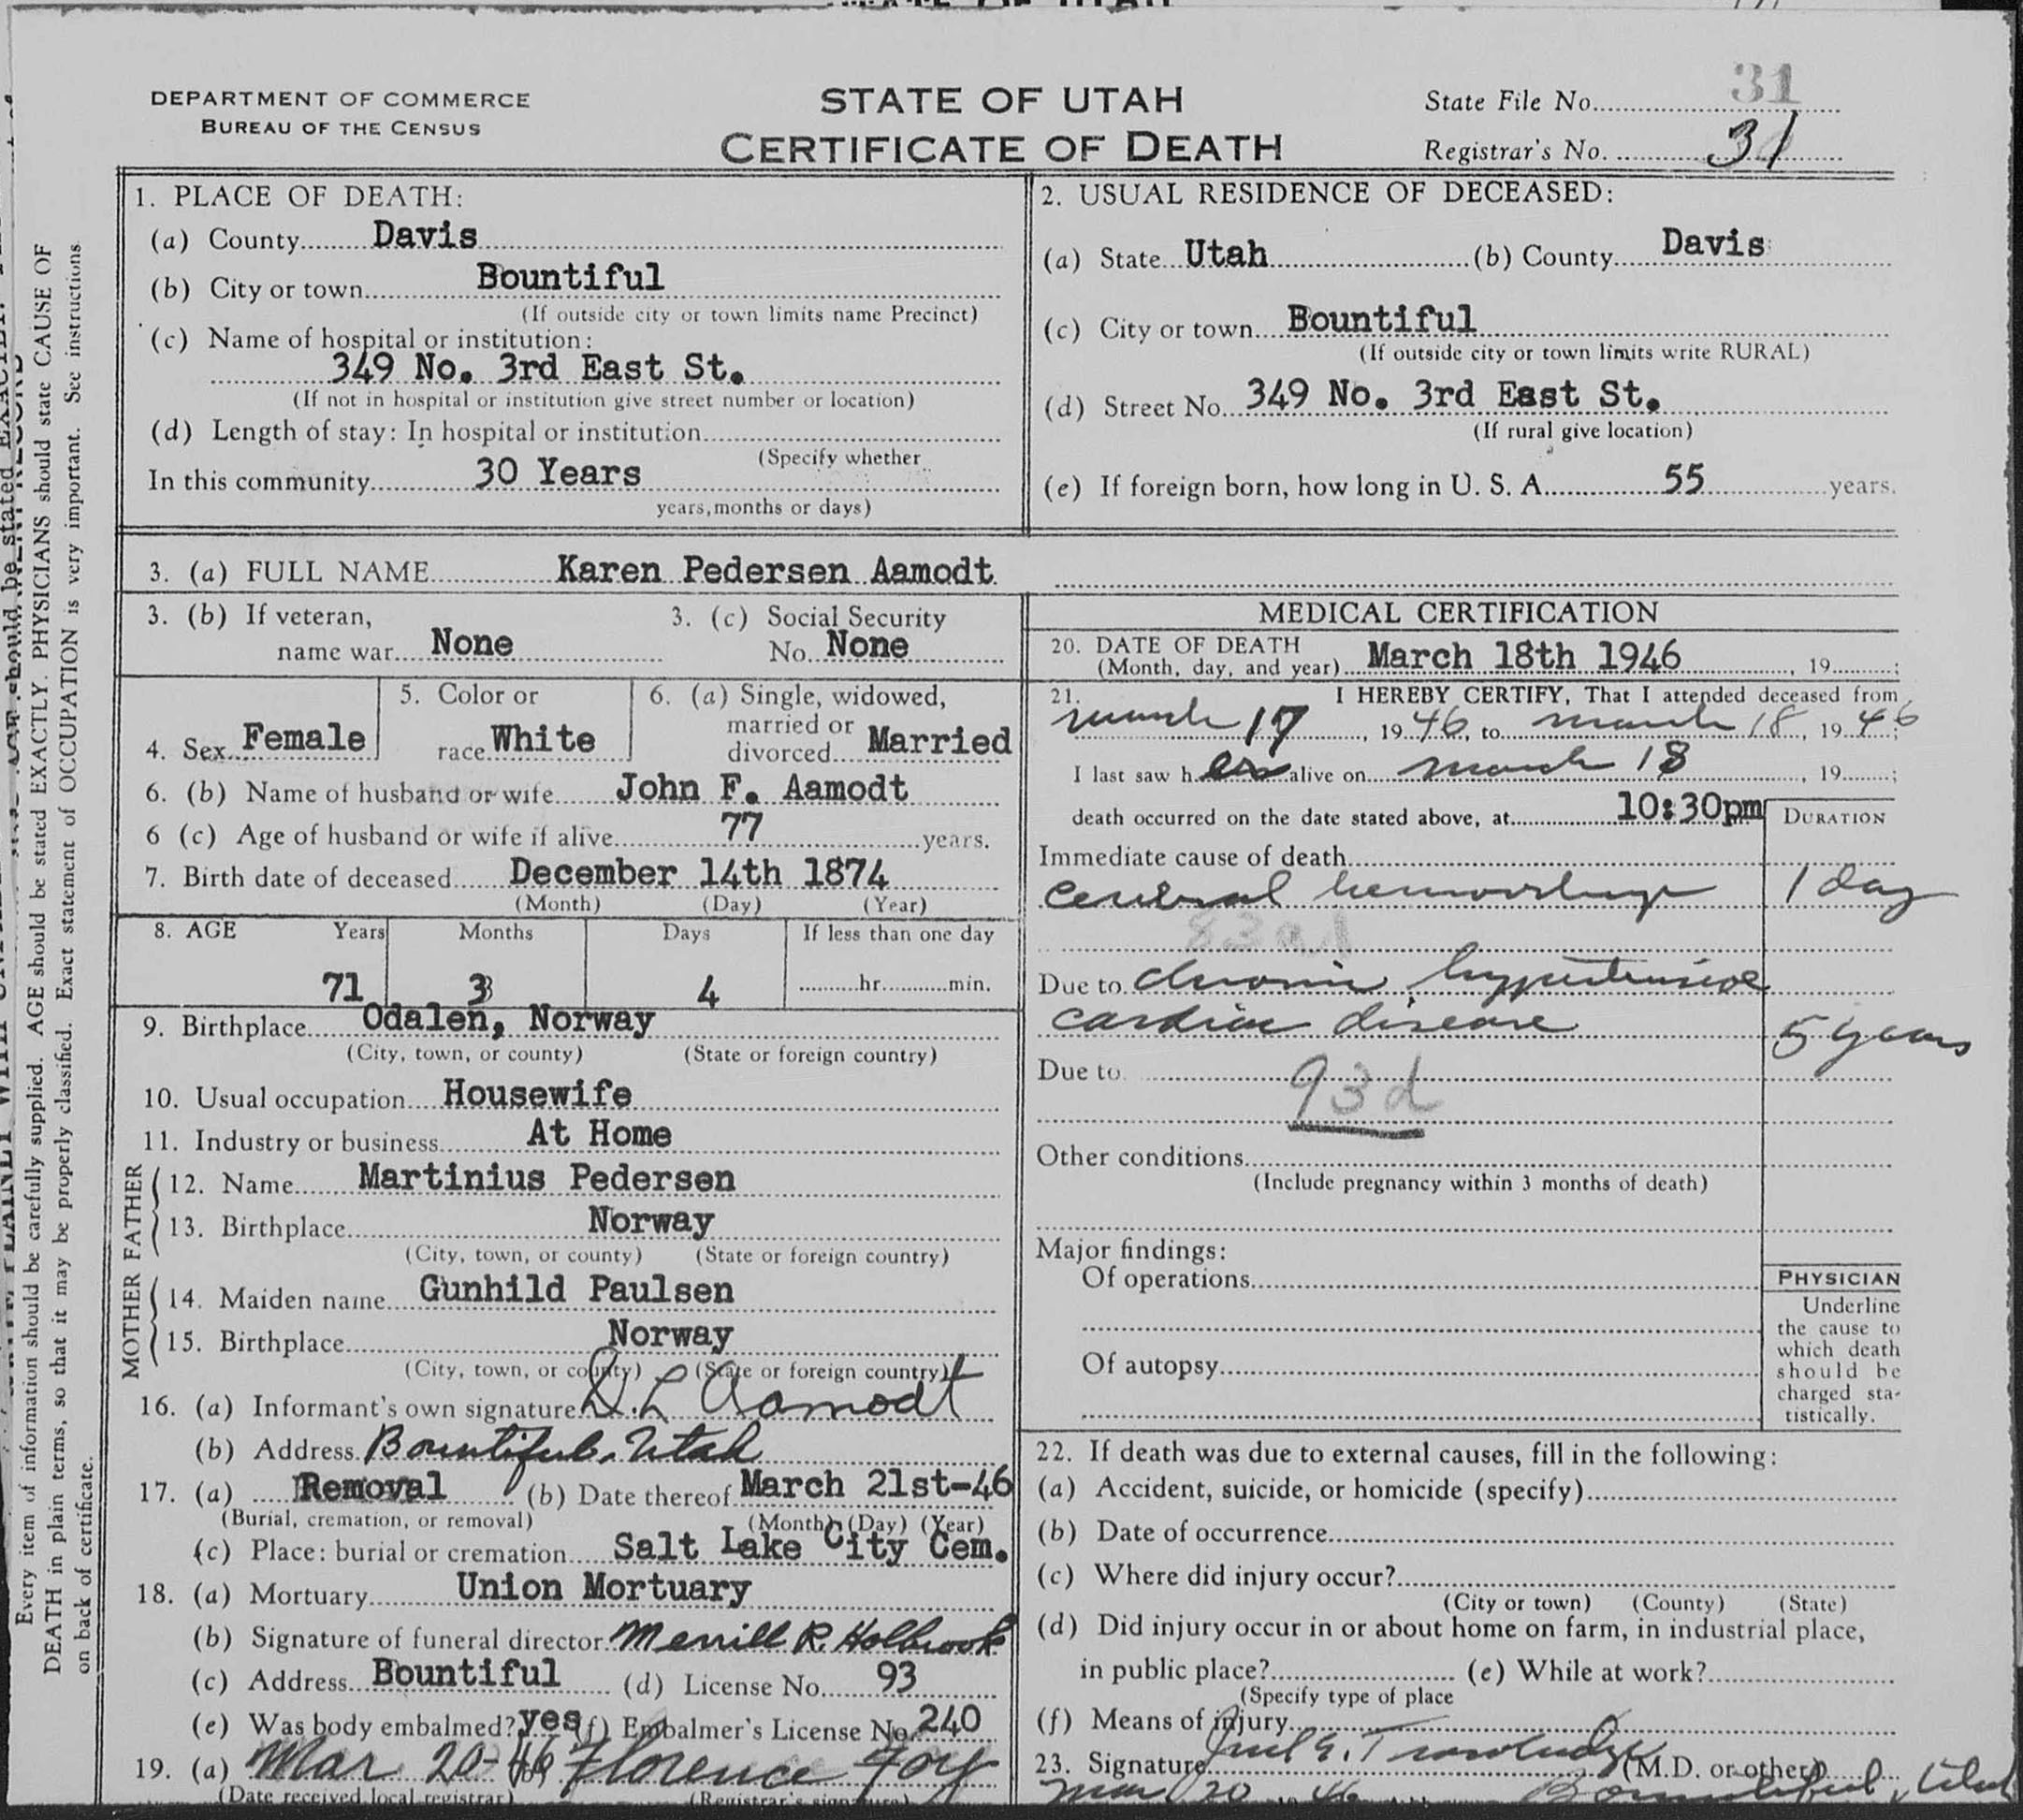 DEPARTMENT OF COMMERCE
BUREAU OF THE CENSUS
STATE OF UTAH
CERTIFICATE OF DEATH
State File No. 31
Registrar's No. 31
1. PLACE OF DEATH:
(a) County Davis
(b) City or town Bountiful
(If outside city or town limits name Precinct)
(c) Name of hospital or institution:
349 No. 3rd East St.
(If not in hospital or institution give street number or location)
(d) Length of stay: In hospital or institution
(Specify whether
In this community 30 Years
years, months or days)
2. USUAL RESIDENCE OF DECEASED:
(a) State Utah (b) County Davis
(c) City or town Bountiful
(If outside city or town limits write RURAL)
(d) Street No. 349 No. 3rd East St.
(If rural give location)
(e) If foreign born, how long in U. S. A. 55 years.
3. (a) FULL NAME Karen Pedersen Aamodt
3. (b) If veteran,
name war None
3. (c) Social Security
No. None
4. Sex Female
5. Color or
race White
6. (a) Single, widowed,
married or
divorced Married
6. (b) Name of husband or wife John F. Aamodt
6 (c) Age of husband or wife if alive 77 years.
7. Birth date of deceased December 14th 1874
(Month) (Day) (Year)
8. AGE Years Months Days If less than one day
71 3 4 hr. min.
9. Birthplace Odalen, Norway
(City, town, or county) (State or foreign country)
10. Usual occupation Housewife
11. Industry or business At Home
FATHER
12. Name Martinius Pedersen
13. Birthplace Norway
(City, town, or county) (State or foreign country)
MOTHER
14. Maiden name Gunhild Paulsen
15. Birthplace Norway
(City, town, or county) (State or foreign country)
16. (a) Informant's own signature D. L Aamodt
(b) Address Bountiful, Utah
17. (a) Removal (b) Date thereof March 21st-46
(Burial, cremation, or removal) (Month) (Day) (Year)
(c) Place: burial or cremation Salt Lake City Cem.
18. (a) Mortuary Union Mortuary
(b) Signature of funeral director Merrill R. Holbrook
(c) Address Bountiful (d) License No. 93
(e) Was body embalmed? yes (f) Embalmer's License No. 240
19. (a) Mar 20-46 (b) Florence Foy
(Date received local registrar) (Registrar's signature)
MEDICAL CERTIFICATION
20. DATE OF DEATH
(Month, day, and year) March 18th 1946, 19 ;
21. I HEREBY CERTIFY, That I attended deceased from
march 17, 1946, to march 18, 1946;
I last saw h er alive on march 18, 19 ;
death occurred on the date stated above, at 10:30pm
DURATION
Immediate cause of death
cerebral hemorrhage 1 day
Due to chronic hypertensive
cardiac disease 5 years
Due to
93d
Other conditions
(Include pregnancy within 3 months of death)
Major findings:
Of operations
Of autopsy
PHYSICIAN
Underline
the cause to
which death
should be
charged sta-
tistically.
22. If death was due to external causes, fill in the following:
(a) Accident, suicide, or homicide (specify)
(b) Date of occurrence
(c) Where did injury occur?
(City or town) (County) (State)
(d) Did injury occur in or about home on farm, in industrial place,
in public place? (e) While at work?
(Specify type of place
(f) Means of injury
23. Signature Trowbridge (M.D. or other)
Mar 20 46 Bountiful, Utah
Every item of information should be carefully supplied. AGE should be stated EXACTLY. PHYSICIANS should state CAUSE OF
DEATH in plain terms, so that it may be properly classified. Exact statement of OCCUPATION is very important. See instructions
on back of certificate.